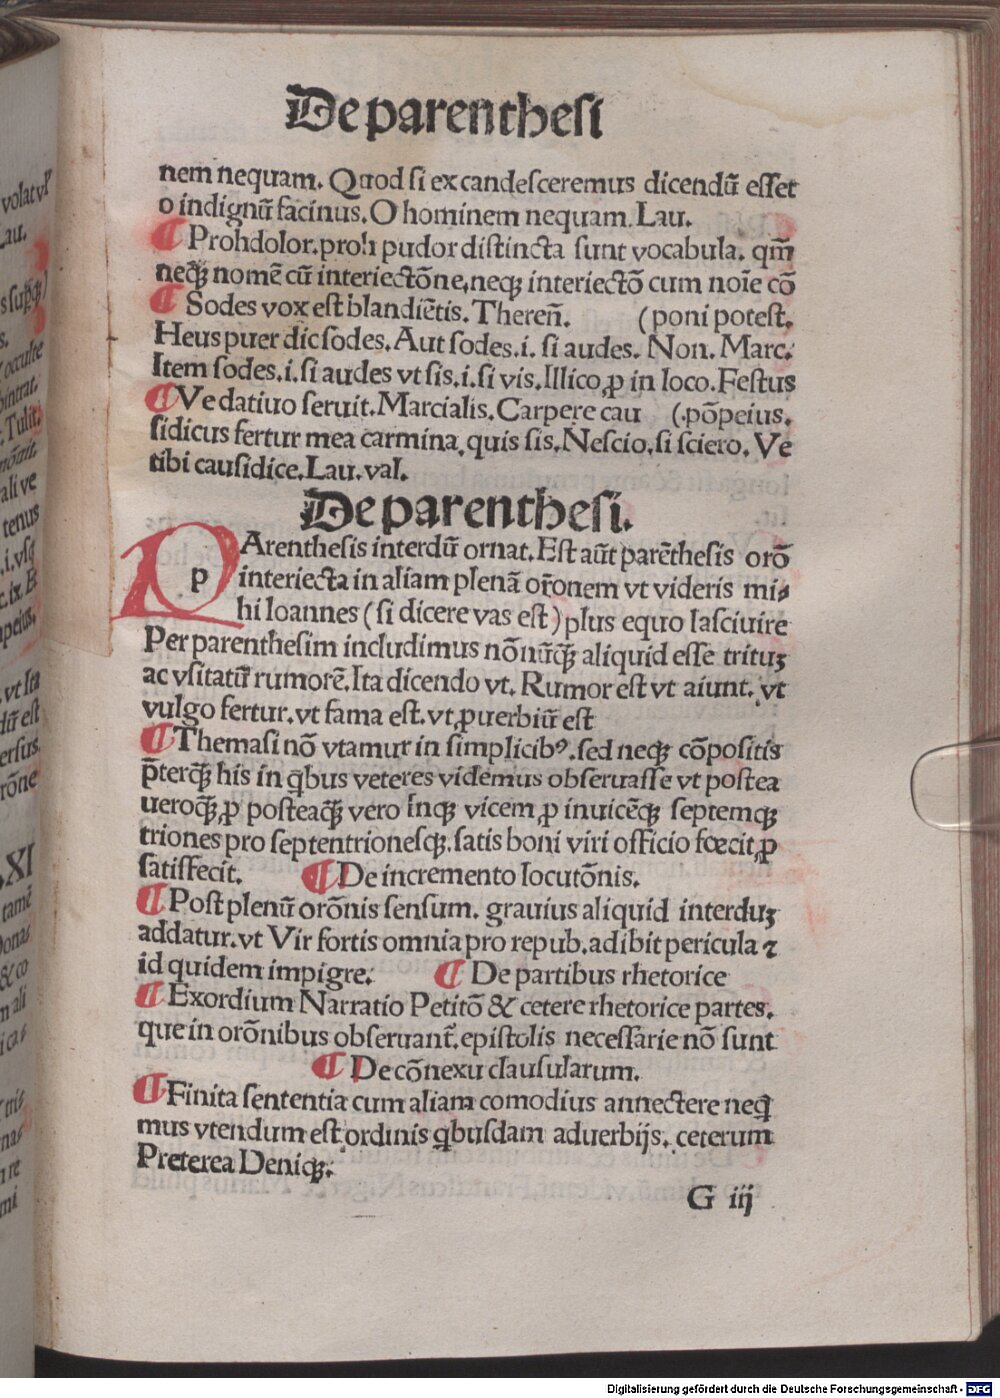 De parenthesi
nem nequam. Quod si excandesceremus dicendū esset
o indignū facinus. O hominem nequam. Lau.
¶ Prohdolor. proh pudor distincta sunt vocabula. qm̄
neqꝫ nomē cū interiectōne, neqꝫ interiectō cum noīe cō
¶ Sodes vox est blandiētis. Thereñ. (poni potest.
Heus puer dic sodes. Aut sodes. i. si audes. Non. Marc.
Item sodes. i. si audes vt sis. i. si vis. Illico ꝓ in loco. Festus
¶ Ve datiuo seruit. Marcialis. Carpere cau (pōpeius.
sidicus fertur mea carmina, quis sis. Nescio, si sciero. Ve
tibi causidice. Lau. val.
De parenthesi.
p ARenthesis interdū ornat. Est aūt parēthesis orō
interiecta in aliam plenā orōnem vt videris mi⸗
hi Ioannes (si dicere vas est) plus equo lasciuire
Per parenthesim includimus nōnūqꝫ aliquid esse trituꝫ
ac vsitatū rumorē. Ita dicendo vt. Rumor est vt aiunt. vt
vulgo fertur. vt fama est. vt ꝓuerbiū est
¶ Themasi nō vtamur in simplicibꝰ. sed neqꝫ cōpositis
p̄terqꝫ his in qͥbus veteres videmus obseruasse vt postea
ueroqꝫ, ꝓ posteaqꝫ vero Inqꝫ vicem ꝓ inuicēqꝫ septemqꝫ
triones pro septentrionesqꝫ. satis boni viri officio fœcit, ꝓ
satisfecit. ¶ De incremento locutōnis.
¶ Post plenū orōnis sensum. grauius aliquid interduꝫ
addatur. vt Vir fortis omnia pro repub. adibit pericula ⁊
id quidem impigre. ¶ De partibus rhetorice
¶ Exordium Narratio Petitō & cetere rhetorice partes.
que in orōnibus obseruant̄. epistolis necessarie nō sunt
¶ De cōnexu clausularum.
¶ Finita sententia cum aliam comodius annectere neqͥ
mus vtendum est ordinis qͥbusdam aduerbijs. ceterum
Preterea Deniqꝫ.
G iij
volat vt
Lau.
occulte
Tulit.
ali ve
tenus
. i. vsqꝫ
c. ix. Et
. vt Ita
dū est
ersus.
rōne
XI
tamē
Donas
& co
m ali
icas
Digitalisierung gefördert durch die Deutsche Forschungsgemeinschaft - DFG